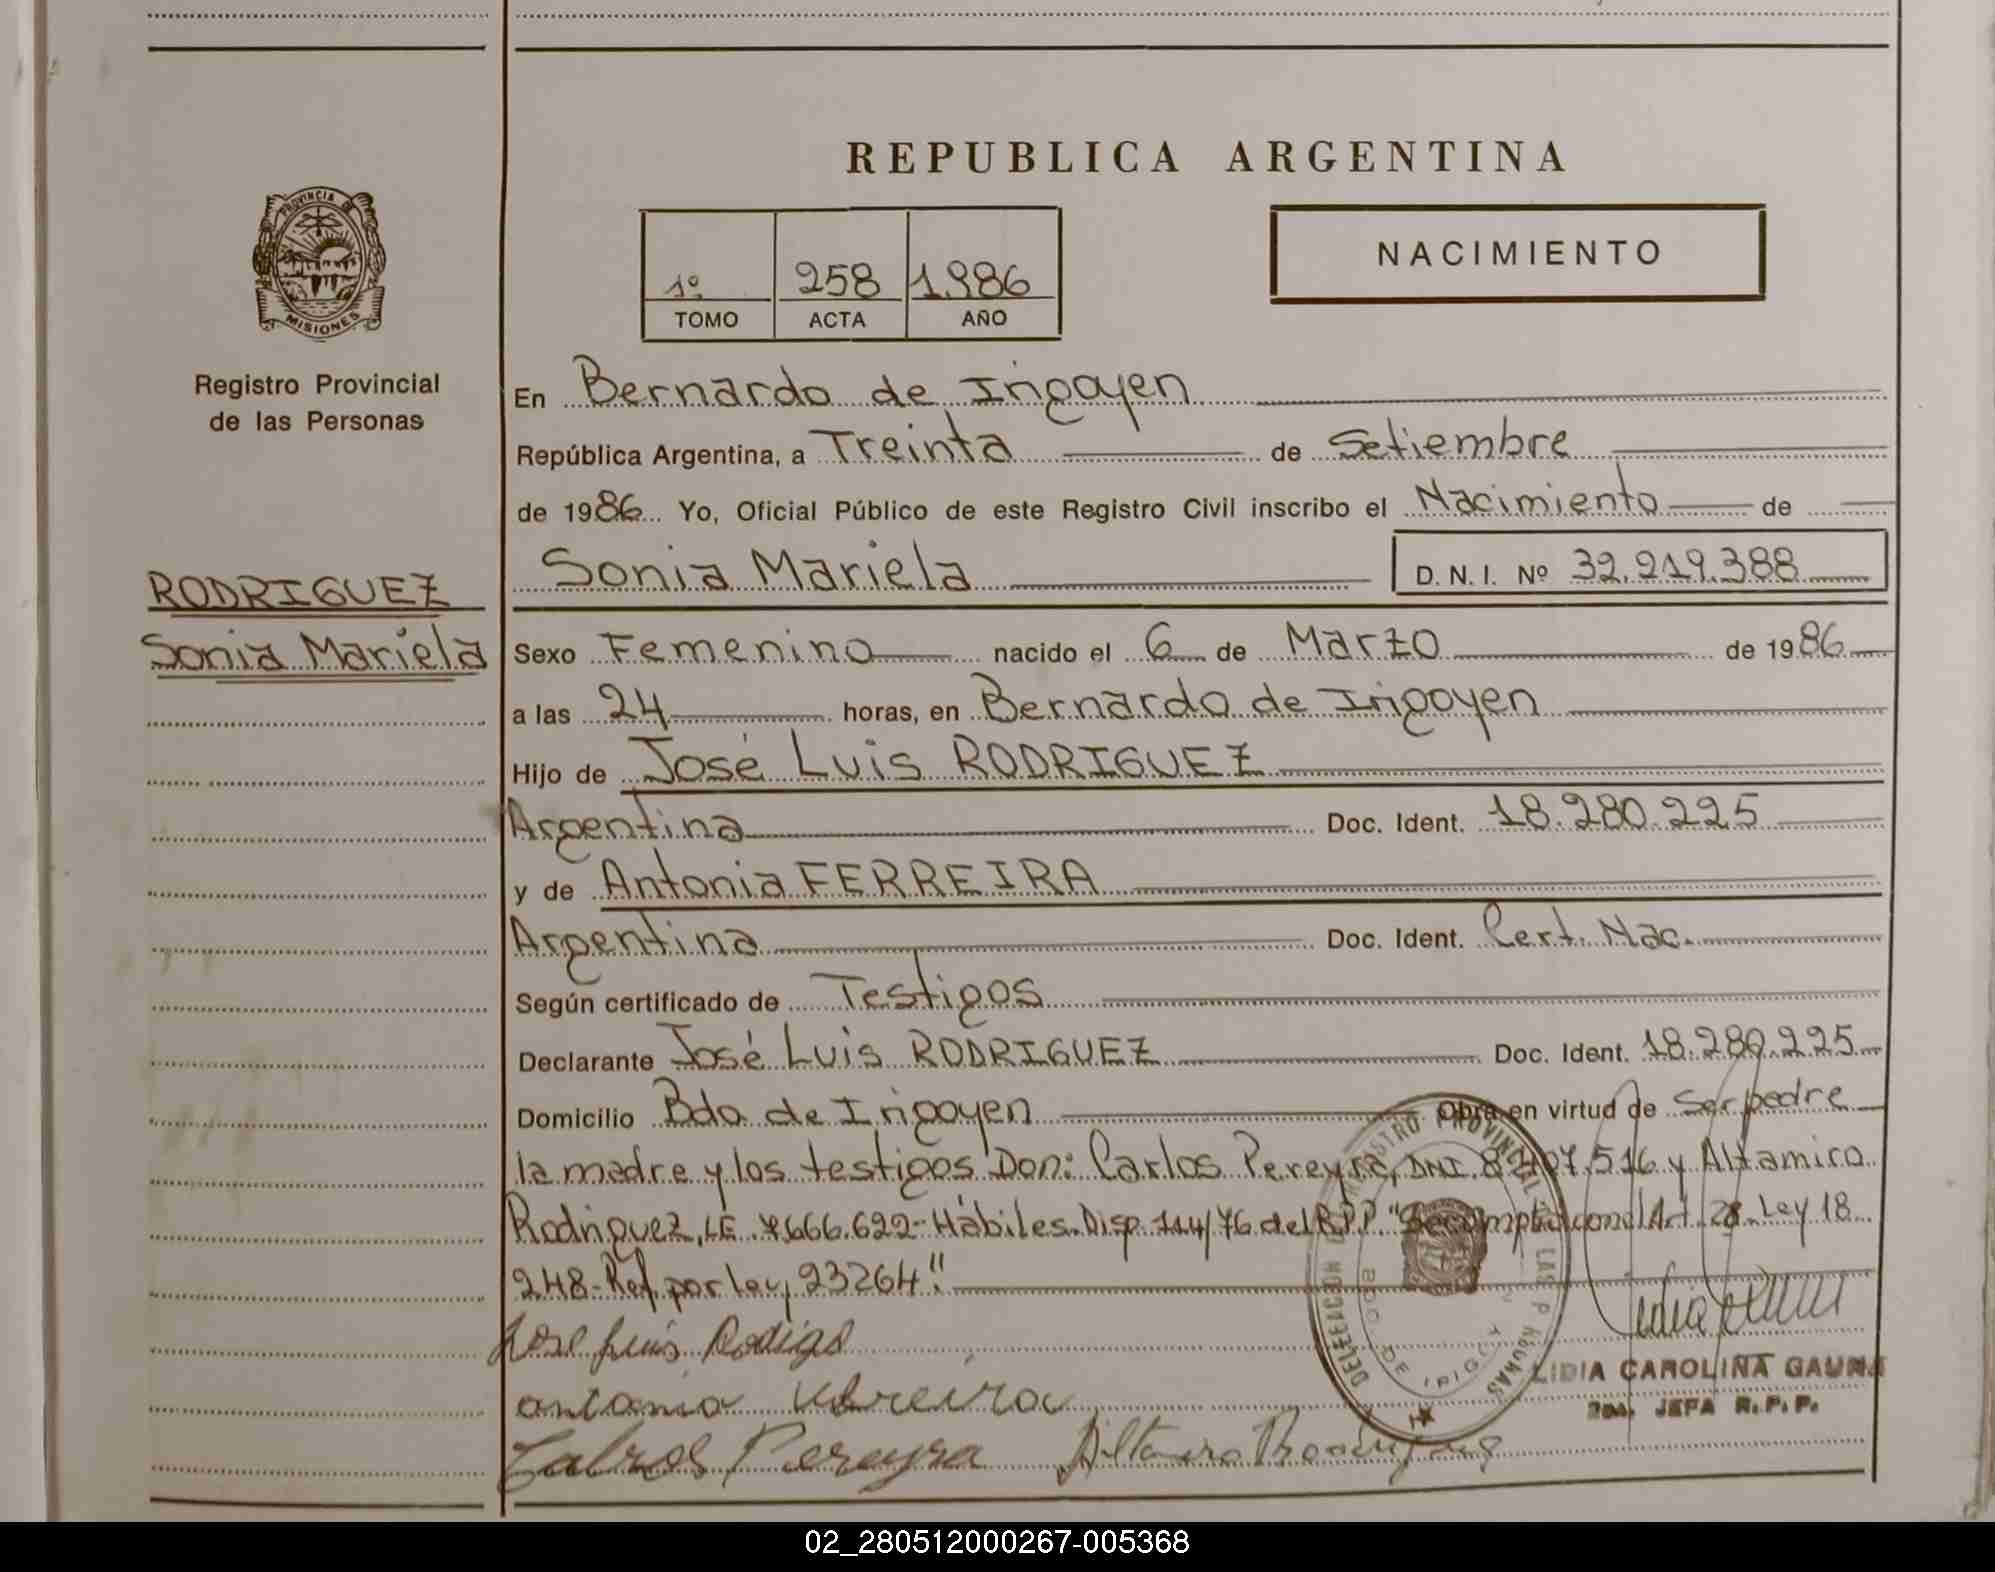 REPUBLICA ARGENTINA
PROVINCIA DE
MISIONES
Registro Provincial
de las Personas
1º 258 1.986
TOMO ACTA AÑO
NACIMIENTO
En Bernardo de Irigoyen
República Argentina, a Treinta de Setiembre
de 1986 Yo, Oficial Público de este Registro Civil inscribo el Nacimiento de
Sonia Mariela D. N. I. Nº 32.219.388
RODRIGUEZ
Sonia Mariela
Sexo Femenino nacido el 6 de Marzo de 1986
a las 24 horas, en Bernardo de Irigoyen
Hijo de José Luis RODRIGUEZ
Argentina Doc. Ident. 18.280.225
y de Antonia FERREIRA
Argentina Doc. Ident. Cert. Nac.
Según certificado de Testigos
Declarante José Luis RODRIGUEZ Doc. Ident. 18.280.225
Domicilio Bdo de Irigoyen Obra en virtud de Ser padre
la madre y los testigos Don: Carlos Pereyra, DNI 8.407.516 y Altamiro
Rodriguez, LE 7.666.622- Hábiles. Disp. 114/76 del R.P.P. "Se cumplió con el Art. 28 Ley 18
248- Ref. por Ley 23264".
Jose Luis Rodrigo
antonia
Pereyra Altamiro Rodriguez
LIDIA CAROLINA GAUNA
2da. JEFA R.P.P.
02_280512000267-005368